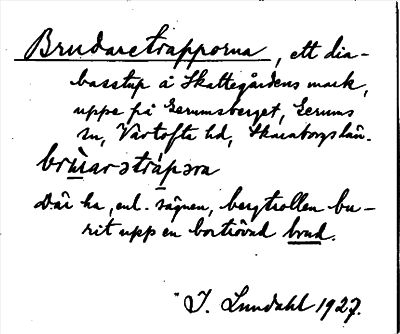 Brudaretrapporna, ett dia-
basstup å Skattegårdens mark,
uppe på Gerumsberget, Gerums
sn, Vartofta hd, Skaraborgs län.
Där ha, enl. sägnen, bergtrollen bu-
rit upp en bortrövad brud.
J. Lundahl 1927.